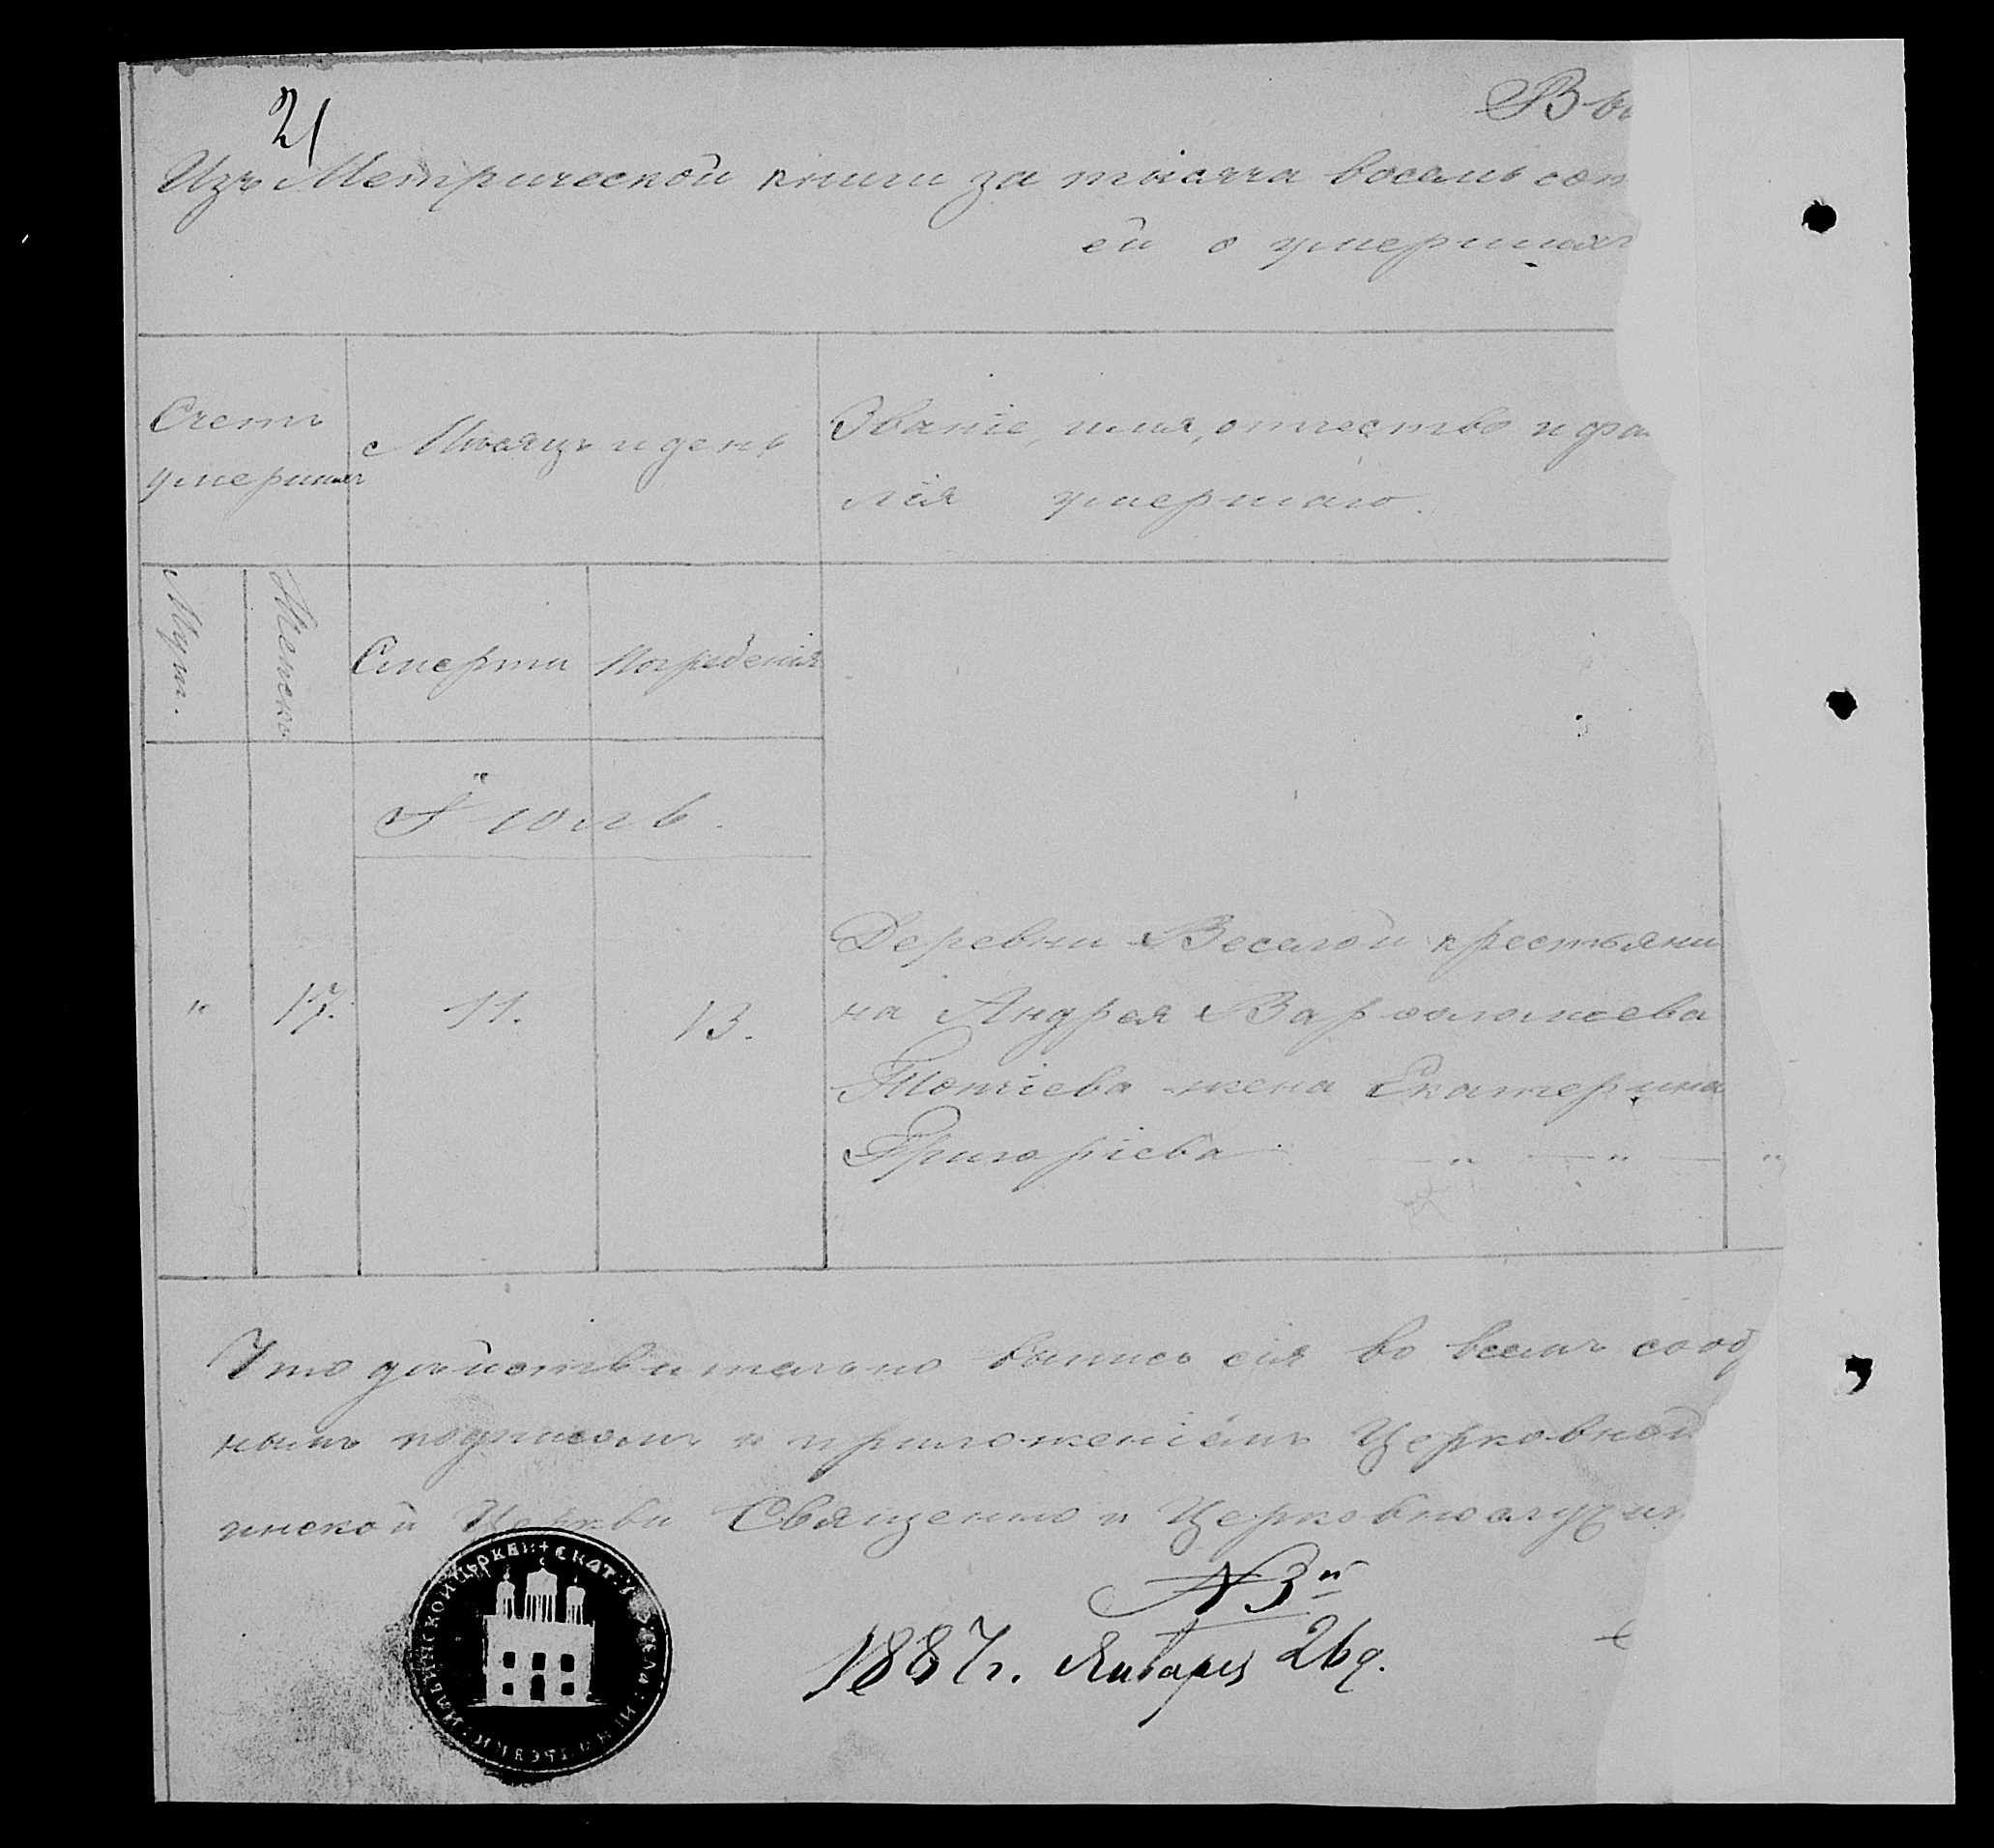 21
Вы
Изъ Метрической книги за тысяча восемь сот
ей о умершихъ
Счетъ умершихъ
Мѣсяцъ и день
Званіе, имя, отчество и фами
лія умершаго.
Муж.
Женск.
Смерти
Погребенія
Іюль.
" 17. 11. 13.
Деревни Веселой крестьяни
на Андрея Варѳоломеева
жена Екатерина
Григоріева — " — " — "
Что дѣйствительно выпись сія во всемъ сооб
нымъ подписомъ и приложеніемъ Церковной
инской Церкви Священно и Церковнослужи
N 3й
1887 г. Января 26 д.